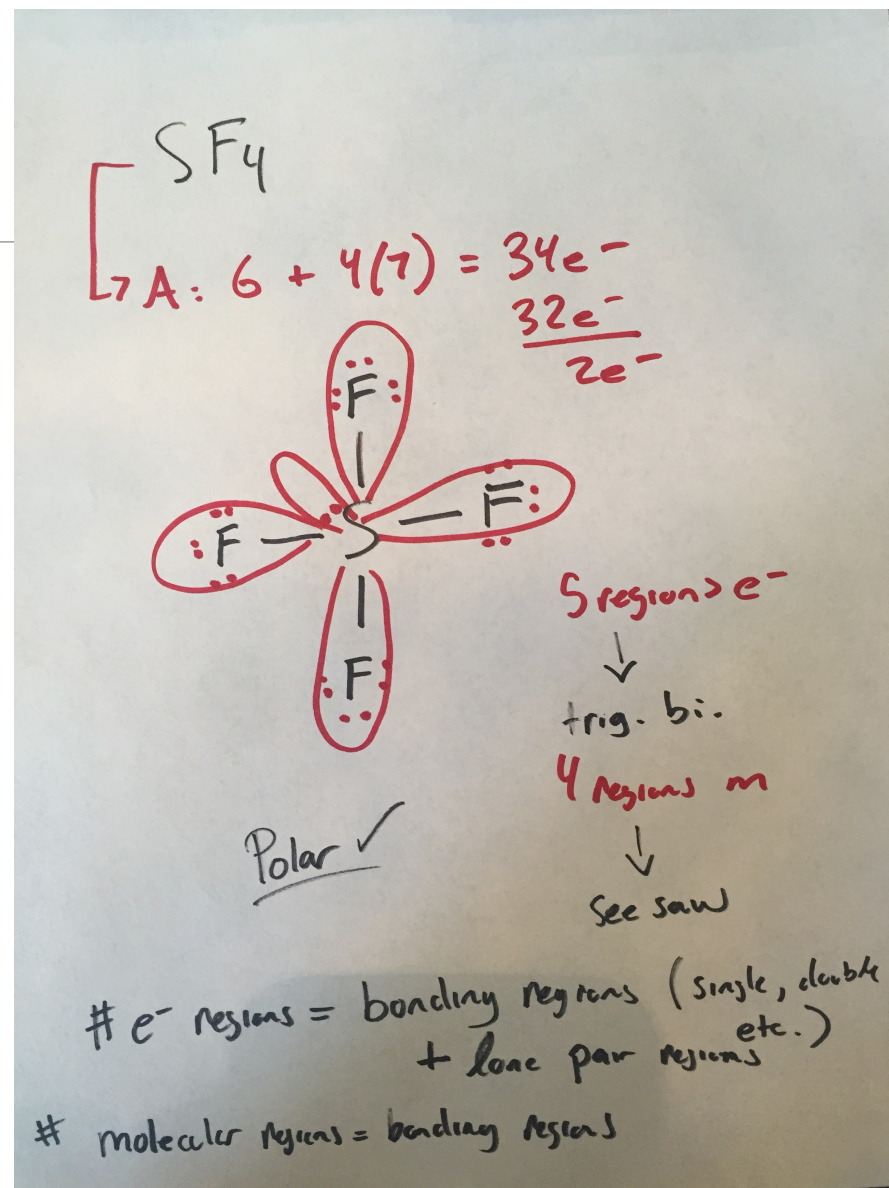 SF4
A: 6 + 4(7) = 34e-
32e-
2e-
F
F
S
F
F
5 regions e-
↓
trig. bi.
4 regions m
↓
See saw
Polar ✓
# e- regions = bonding regions (single, double
etc.)
+ lone pair regions
# molecular regions = bonding regions